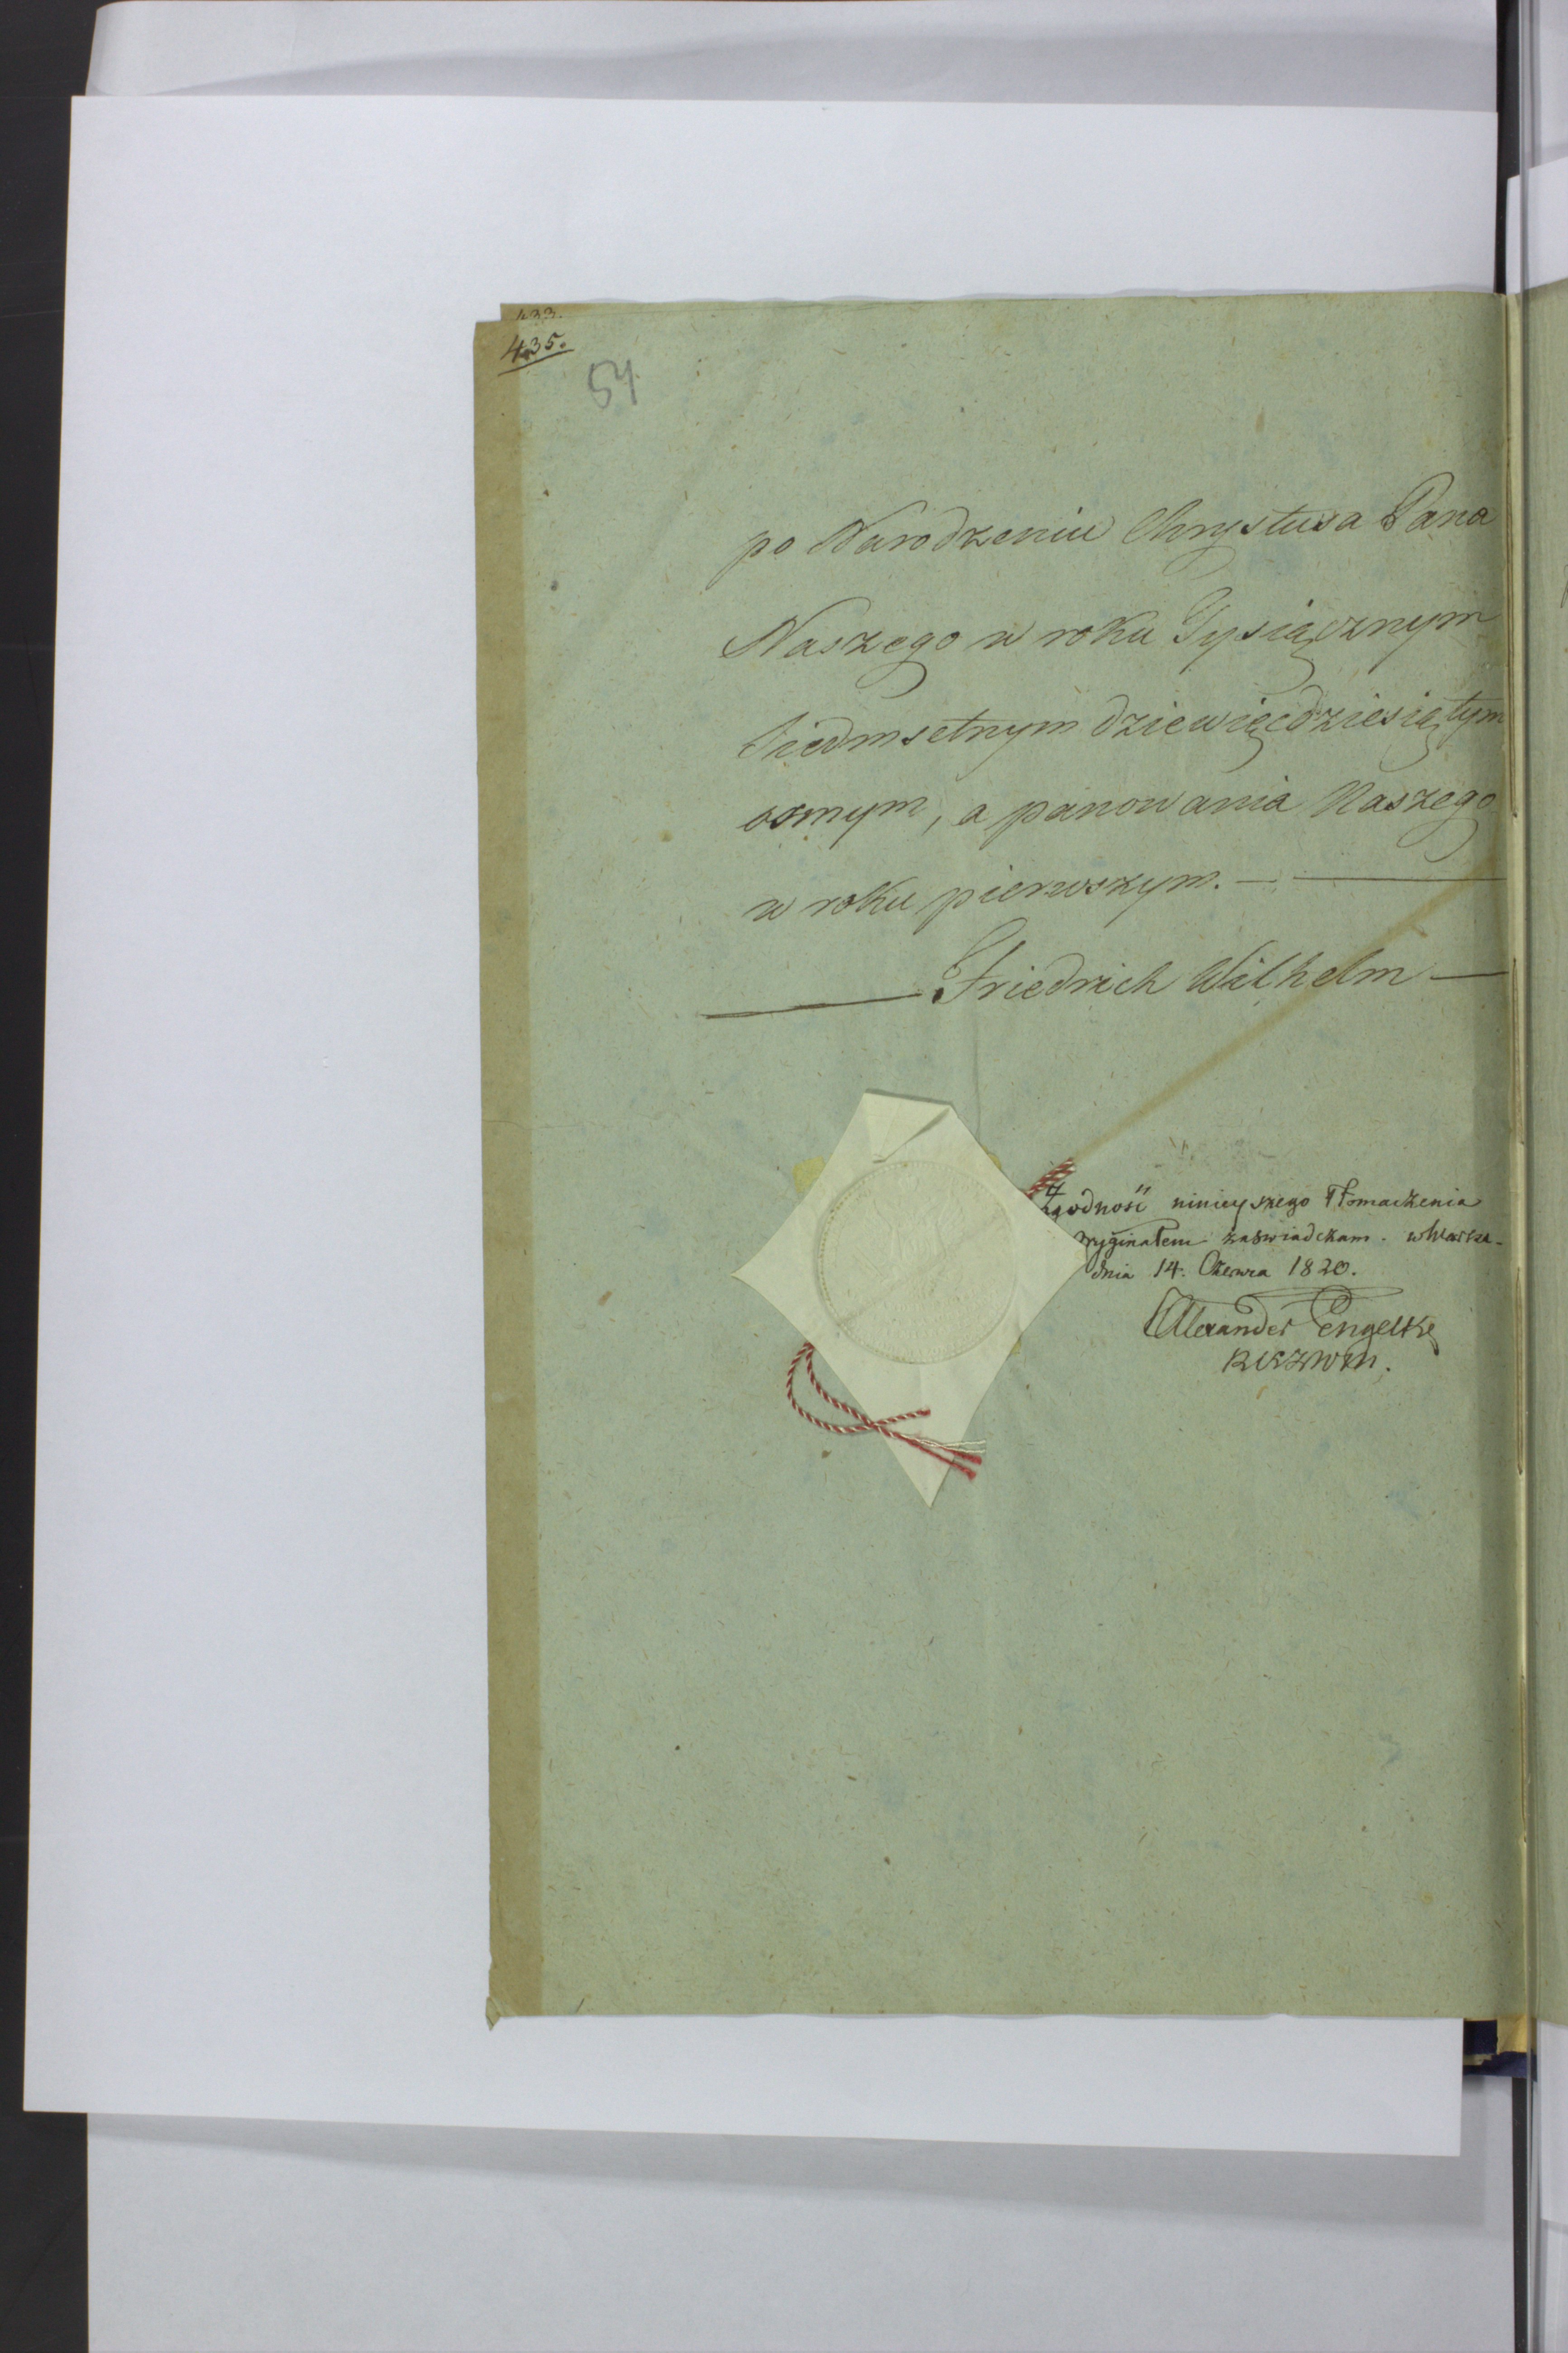 433.
435.
54
po Narodzeniu Chrystusa Pana
Naszego w roku Tysiącznym
Siedmsetnym dziewięcdziesiątym
osmym, a panowania Naszego
w roku pierwszym. —
— Friedrich Wilhelm —
Zgodność ninieyszego Tłomaczenia
oryginałem zaswiadczam. w Warsza-
dnia 14. Czerwca 1820.
Alexander Engelke